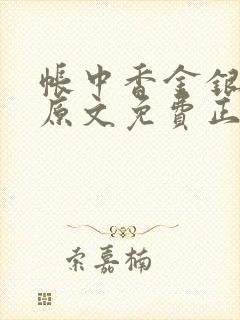 帐中香金银
原文免费正
索嘉楠